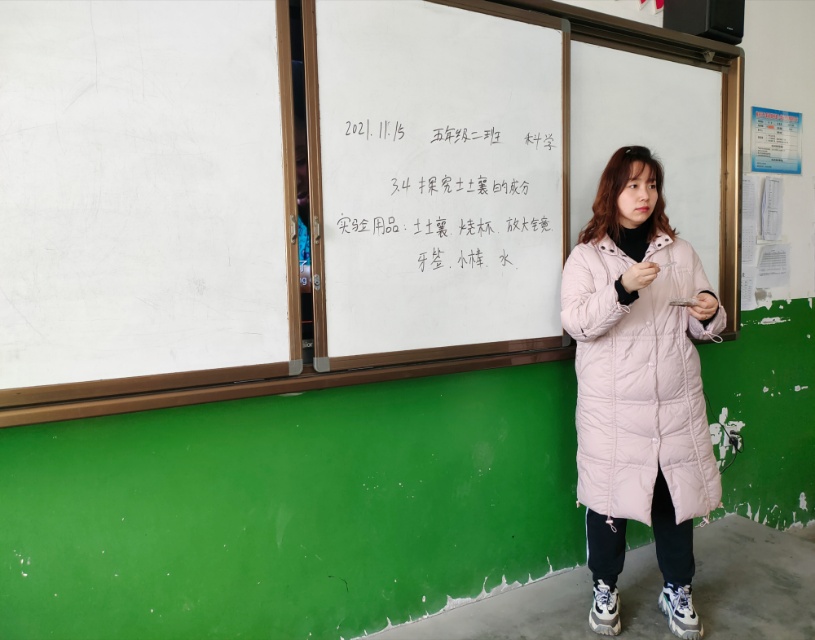 2021.11.15 五年级二班 科学
3.4 探究土壤的成分
实验用品：土壤、烧杯、放大镜
牙签、小棒、水、